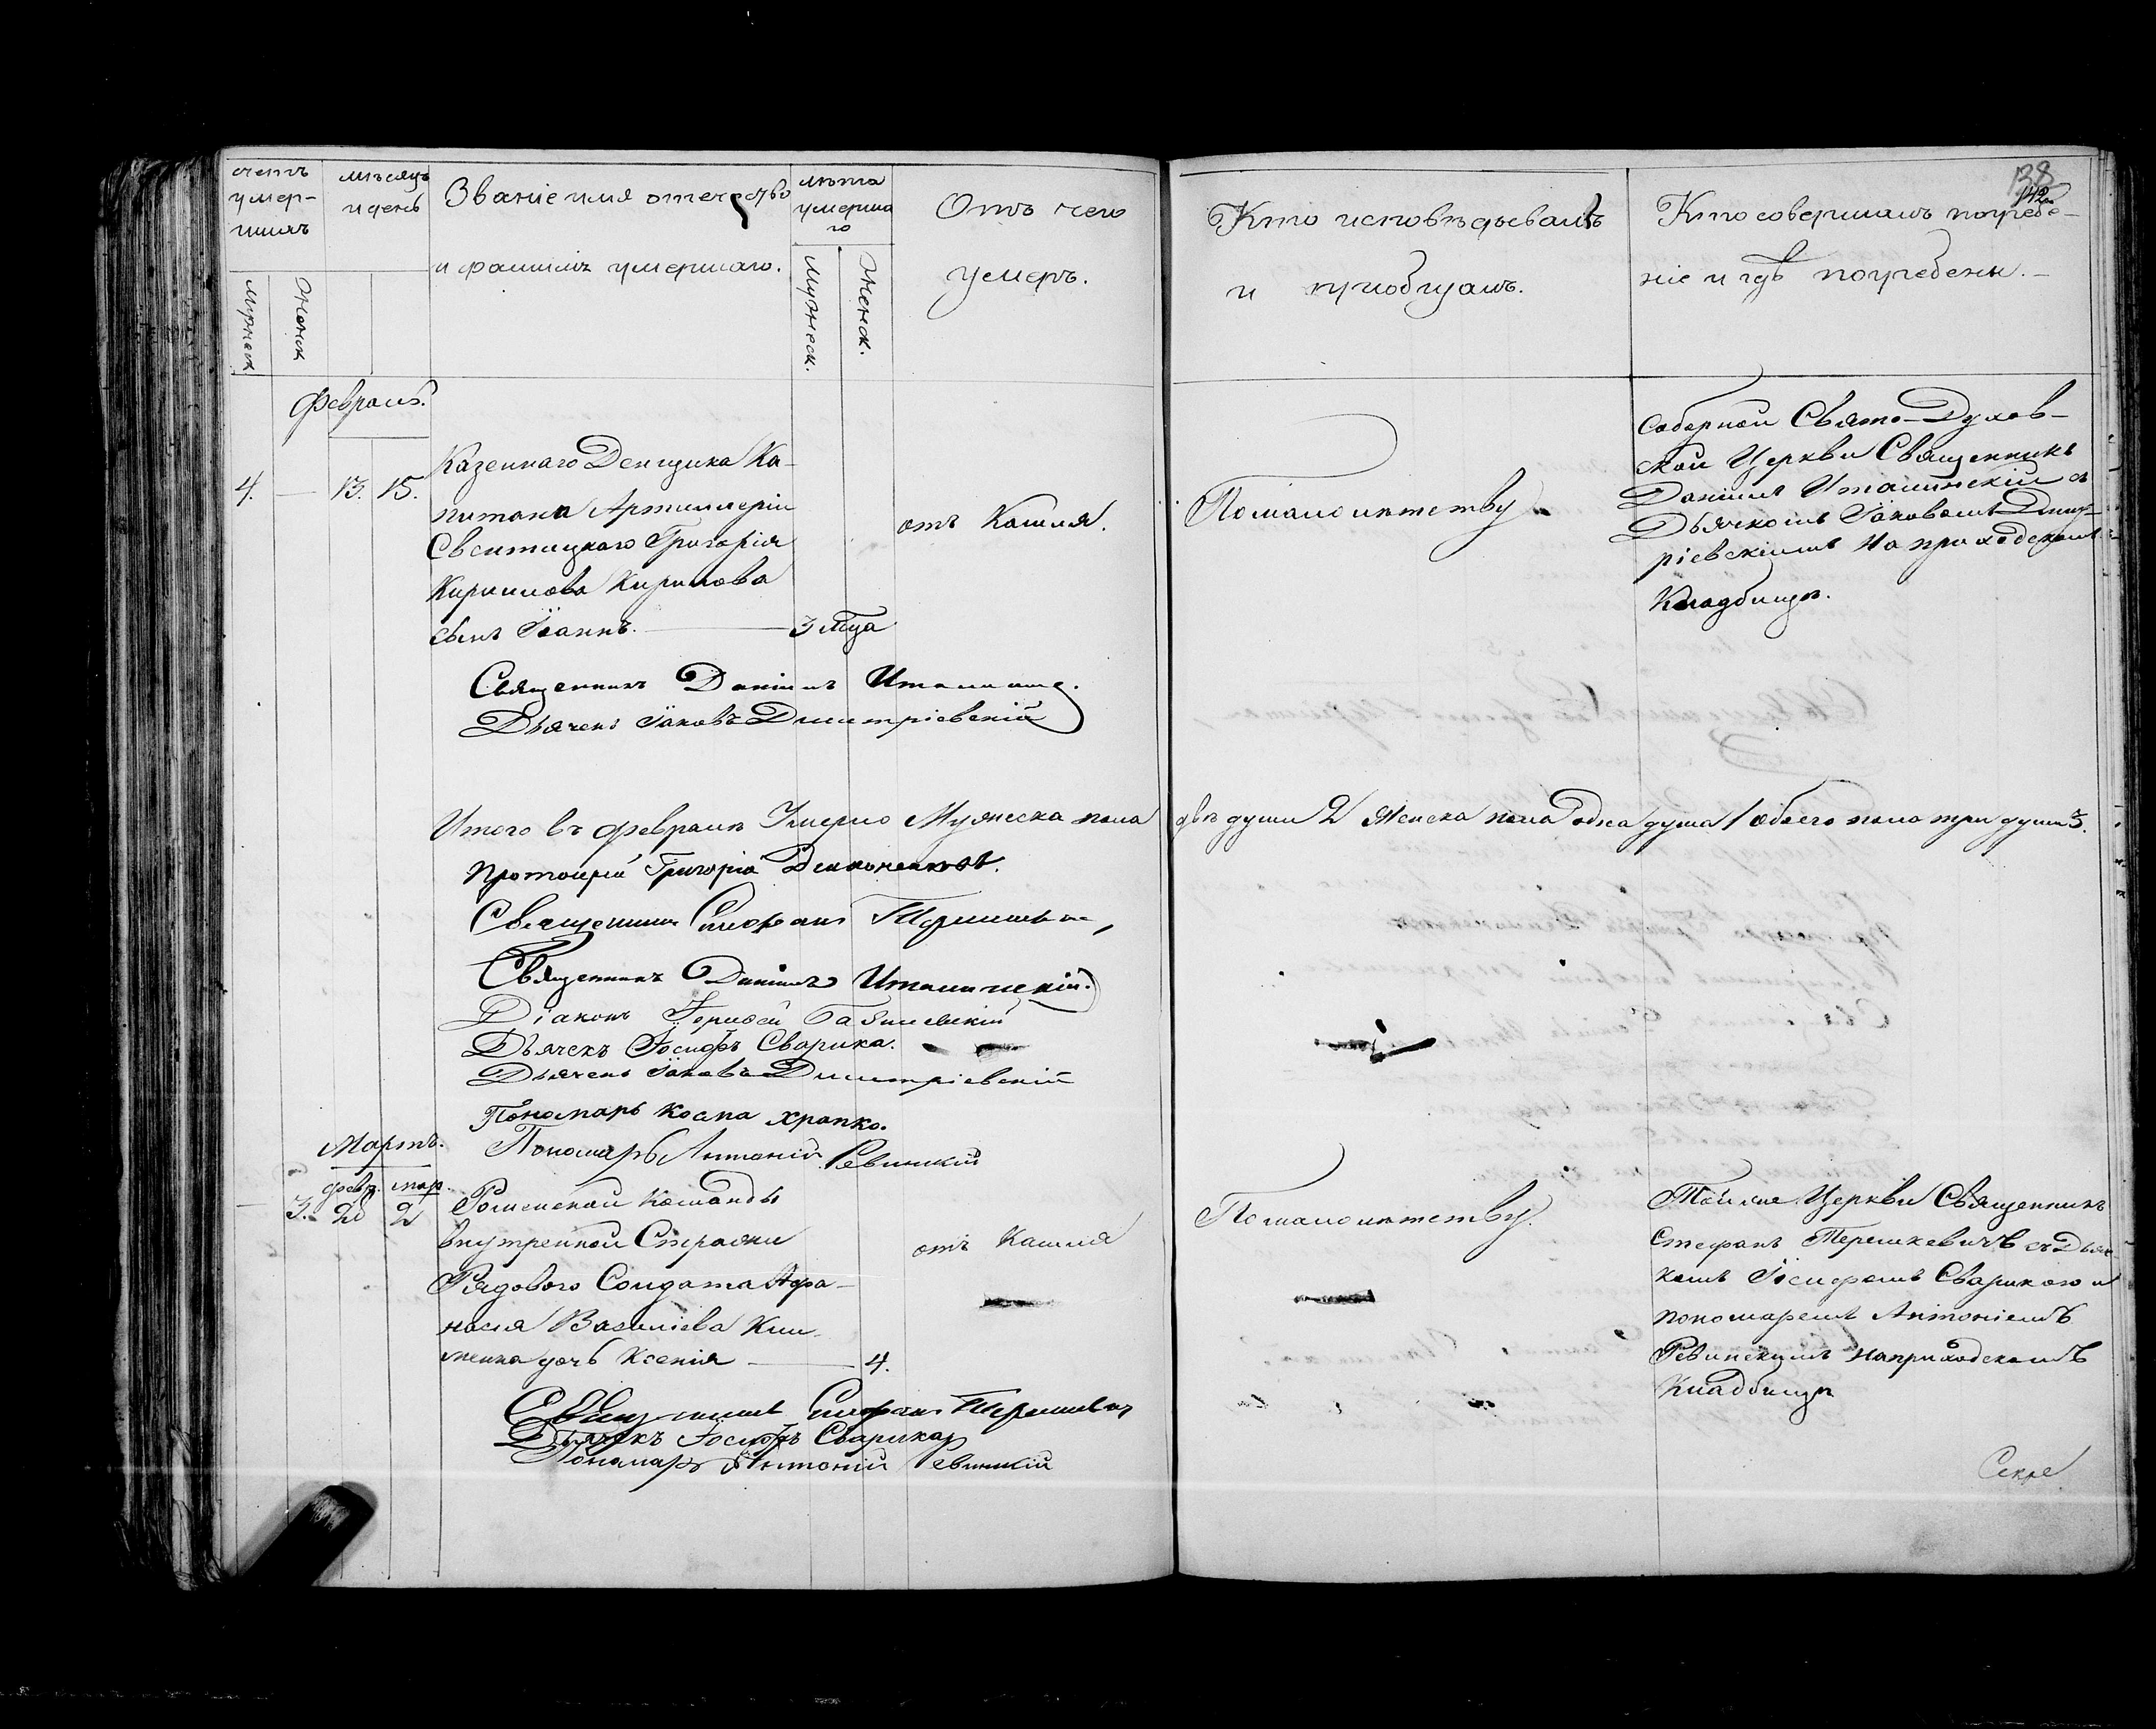 счетъ
умер-
шихъ
Мужеск
Женск
мѣсяцъ
и день
Званіе имя отечество
и фамилія умершаго.
лѣта
умерша
го
Мужеск.
Женск.
Отъ чего
умеръ.
Кто исповѣдывалъ
и пріобщалъ.
138
142
Кто совершалъ погребе-
ніе и гдѣ погребены.
Февраль.
4. — 13. 15.
Казеннаго Денщика Ка-
питана Артиллеріи
Свентицкаго Григорія
Кирилова Кирилова
сынъ Іоаннъ. — 3 мца
отъ Кашля.
По малолѣтству
Соборной Свято-Духов-
ской Церкви Священникъ
Даніилъ Италинскій съ
Дьячкомъ Іаковомъ Димит-
ріевскимъ на приходскомъ
Кладбищѣ.
Священникъ Даніилъ
Дьячекъ Іаковъ Димитріевскій
Итого въ февралѣ Умерло Мужеска пола двѣ души 2 Женска пола одна душа 1 обоего пола три души 3.
Протоіерей Григорій
Священникъ Стефанъ
Священникъ Даніилъ Италинскій.
Діаконъ
Дьячекъ Іосифъ Сварика.
Дьячекъ Іаковъ Димитріевскій
Пономарь Косма Храпко.
Пономарь Антоній Ревинскій
Мартъ.
февр. мар.
— 3. 28 2
Роменской Команды
внутренной Стражи
Рядового Солдата Афа-
насія Василіева Кли-
менка дочь Ксенія — 4.
отъ Кашля
По малолѣтству.
Тоя же Церкви Священникъ
Стефанъ Терешкевичъ съ Дьяч-
комъ Іосифомъ Сварикою и
пономаремъ Антоніемъ
Ревинскимъ на приходскомъ
Кладбищѣ
Священникъ Стефанъ Терешкевичъ
Дьячекъ Іосифъ Сварика
Пономарь Антоній Ревинскій
Секре